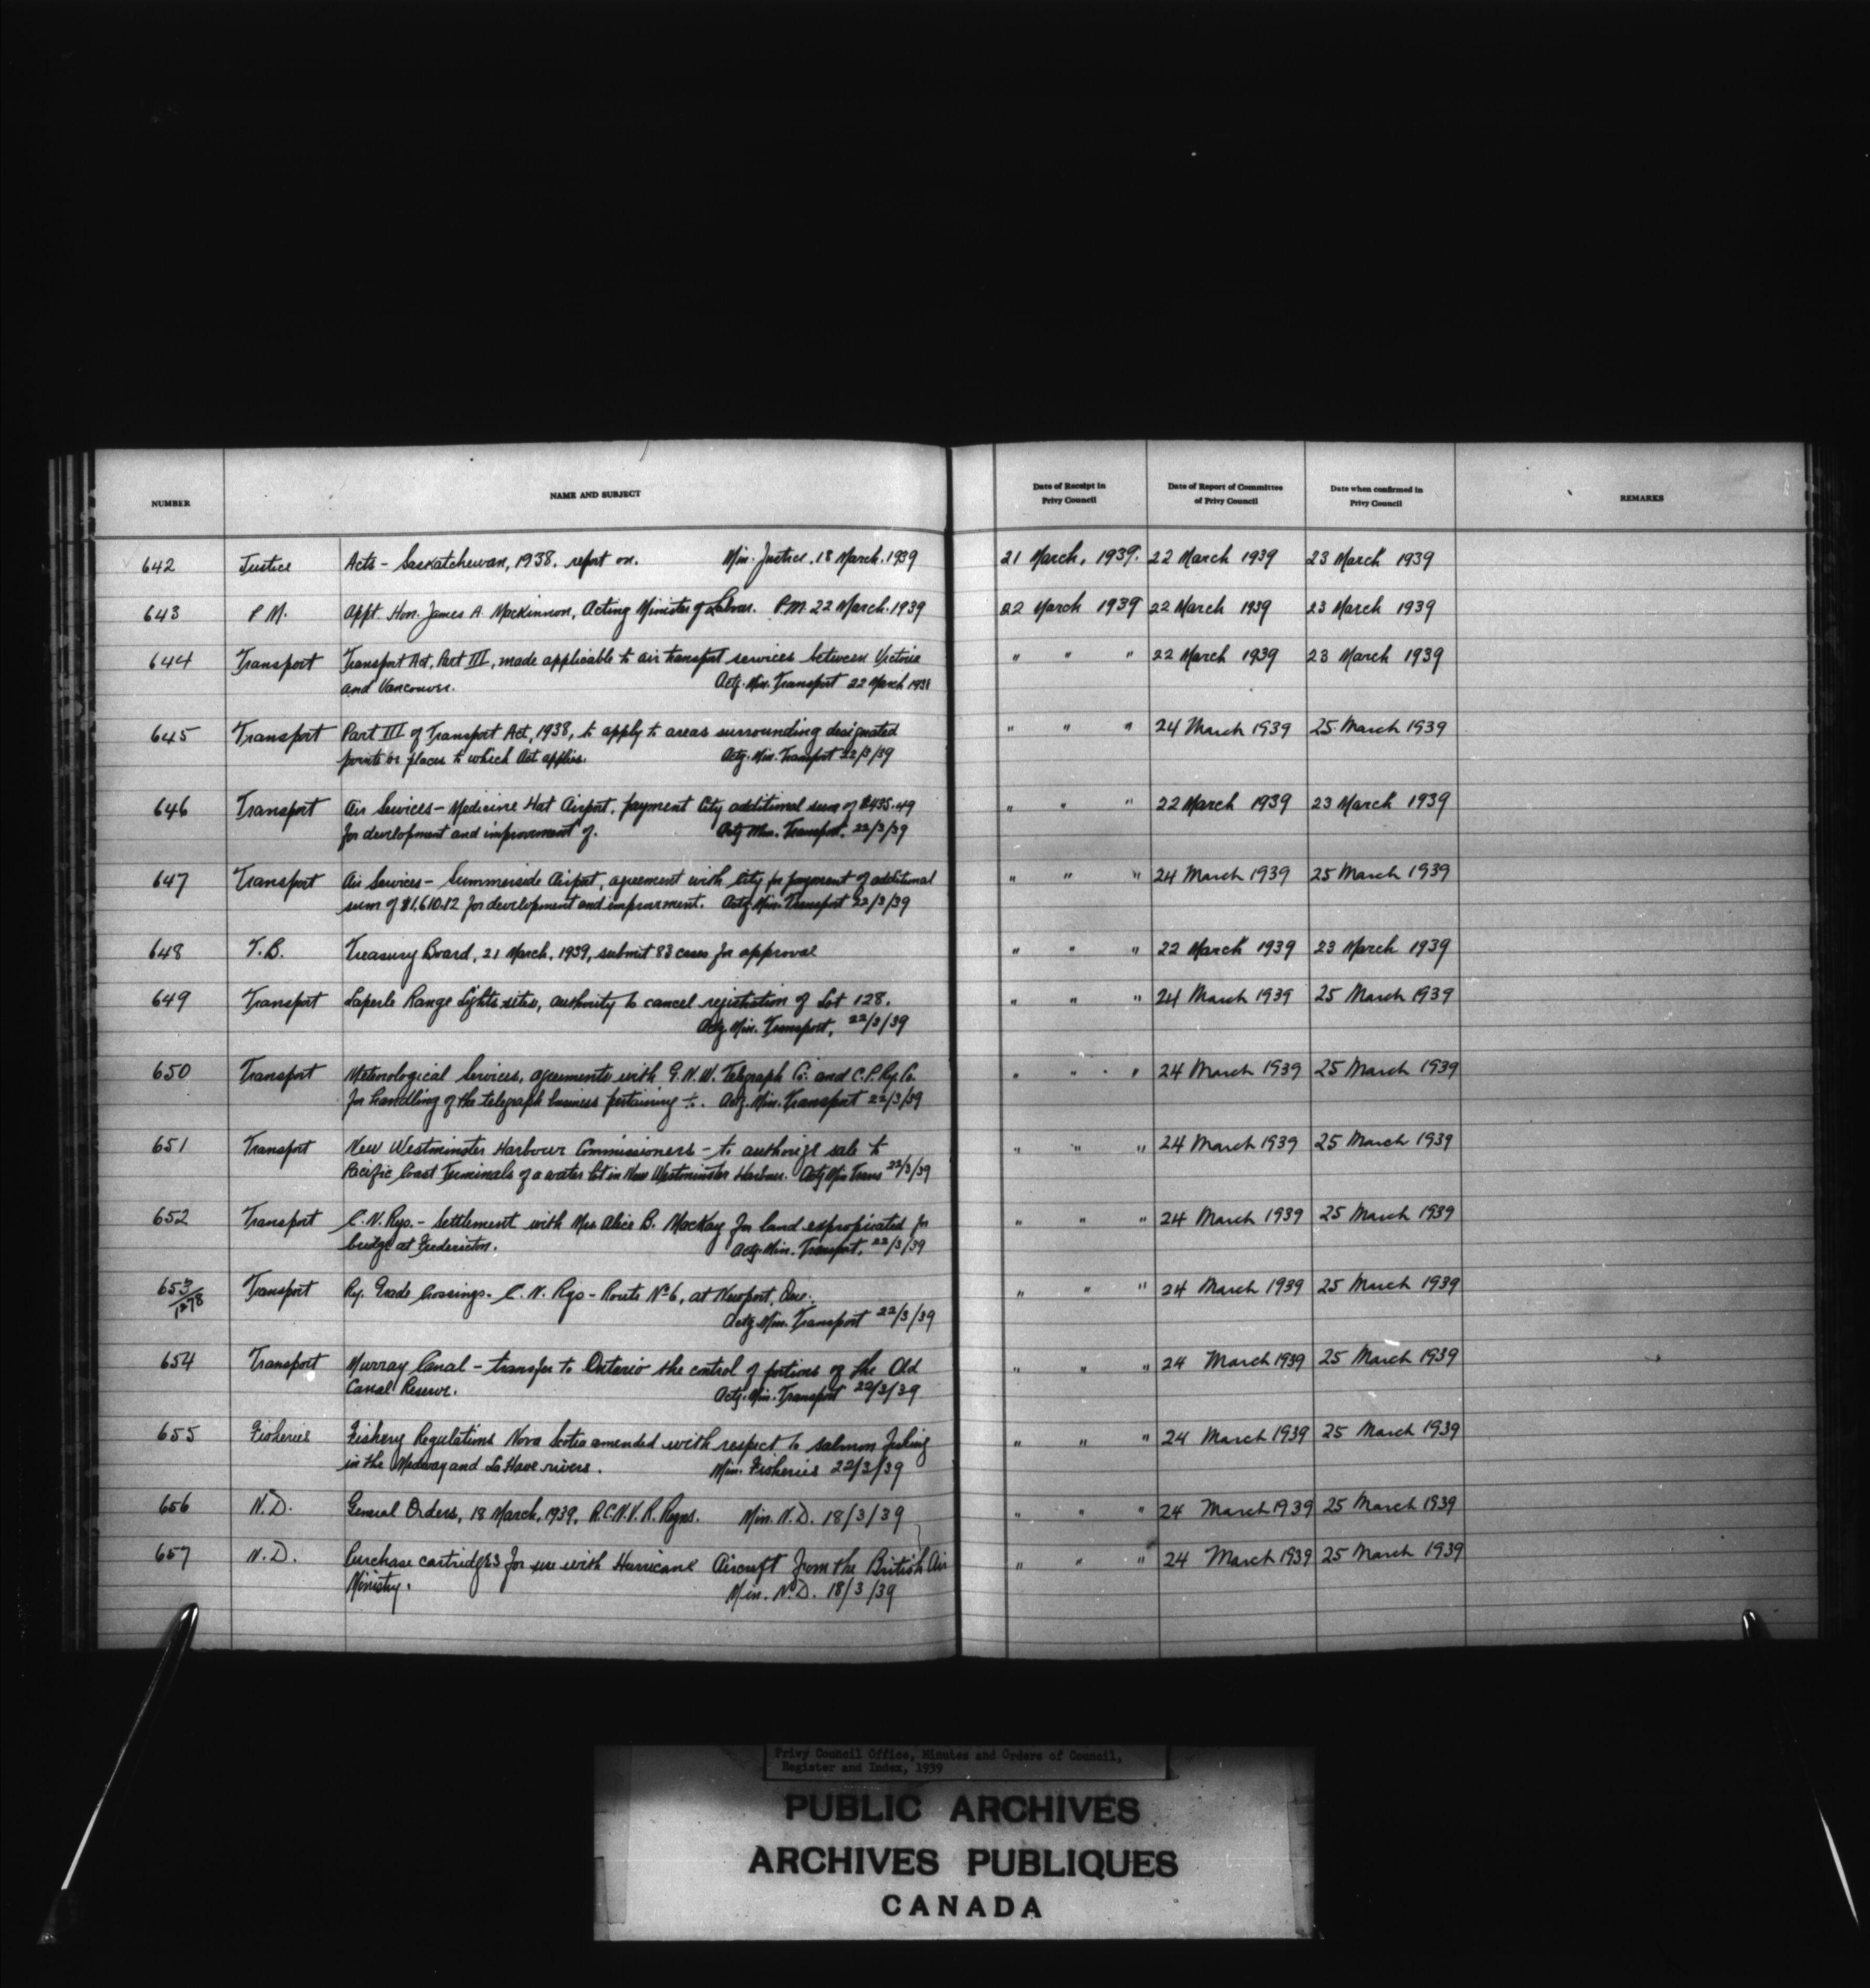 NUMBER NAME AND SUBJECT Date of Receipt in Privy Council Date of Report of Committee of Privy Council Date when confirmed in Privy Council REMARKS
642 Justice Acts - Saskatchewan, 1938, report on. Min. Justice, 18 March, 1939 21 March, 1939. 22 March 1939 23 March 1939
643 P.M. Appt. Hon. James A. MacKinnon, Acting Minister of Labour. P.M. 22 March. 1939 22 March 1939 22 March 1939 23 March 1939
644 Transport Transport Act, Part III, made applicable to air transport services between Victoria " " " 22 March 1939 23 March 1939
and Vancouver. Actg. Min. Transport 22 March 193
645 Transport Part III of Transport Act, 1938, to apply to areas surrounding designated " " " 24 March 1939 25 March 1939
points or places to which Act applies. Actg. Min. Transport 22/3/39
646 Transport Air Services - Medicine Hat Airport, payment City additional sum of $435.49 " " " 22 March 1939 23 March 1939
for development and improvement of. Actg Min. Transport. 22/3/39
647 Transport Air Services - Summerside Airport, agreement with City for payment of additional " " " 24 March 1939 25 March 1939
sum of $1,610.12 for development and improvement. Actg. Min. Transport 22/3/39
648 T.B. Treasury Board, 21 March, 1939, submit 83 cases for approval " " " 22 March 1939 23 March 1939
649 Transport Laperle Range Lights sites, authority to cancel registration of Lot 128. " " " 24 March 1939 25 March 1939
Actg. Min. Transport, 22/3/39
650 Transport Meteorological Services, agreements with G.N.W. Telegraph Co. and C.P.Ry. Co. " " " 24 March 1939 25 March 1939
for handling of the telegraph business pertaining to. Actg. Min. Transport 22/3/39
651 Transport New Westminster Harbour Commissioners - to authorize sale to " " " 24 March 1939 25 March 1939
Pacific Coast Terminals of a water lot in New Westminster Harbour. Actg Min Trans 22/3/39
652 Transport C.N. Rys. - Settlement with Mrs Alice B. MacKay for land expropriated for " " " 24 March 1939 25 March 1939
bridge at Fredericton. Actg. Min. Transport, 22/3/39
653/1278 Transport Ry. Grade Crossings - C.N. Rys - Route No 6, at Newport, Que. " " " 24 March 1939 25 March 1939
Actg. Min. Transport 22/3/39
654 Transport Murray Canal - transfer to Ontario the control of portions of the Old " " " 24 March 1939 25 March 1939
Canal Reserve. Actg. Min. Transport 22/3/39
655 Fisheries Fishery Regulations Nova Scotia amended with respect to salmon fishing " " " 24 March 1939 25 March 1939
in the Medway and La Have rivers. Min. Fisheries 22/3/39
656 N.D. General Orders, 18 March, 1939, R.C.N.V.R. Regns. Min. N.D. 18/3/39 " " " 24 March 1939 25 March 1939
657 N.D. Purchase cartridges for use with Hurricane Aircraft from the British Air " " " 24 March 1939 25 March 1939
Ministry. Min. N.D. 18/3/39
Privy Council Office, Minutes and Orders of Council,
Register and Index, 1939
PUBLIC ARCHIVES
ARCHIVES PUBLIQUES
CANADA